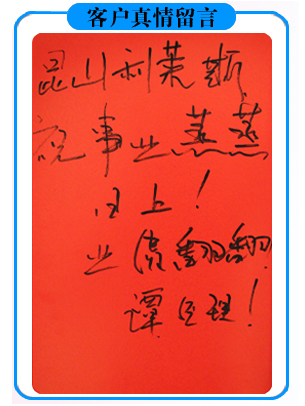 客户真情留言
昆山利莱斯
祝事业蒸蒸
日上！
业绩翻翻
谭经理！